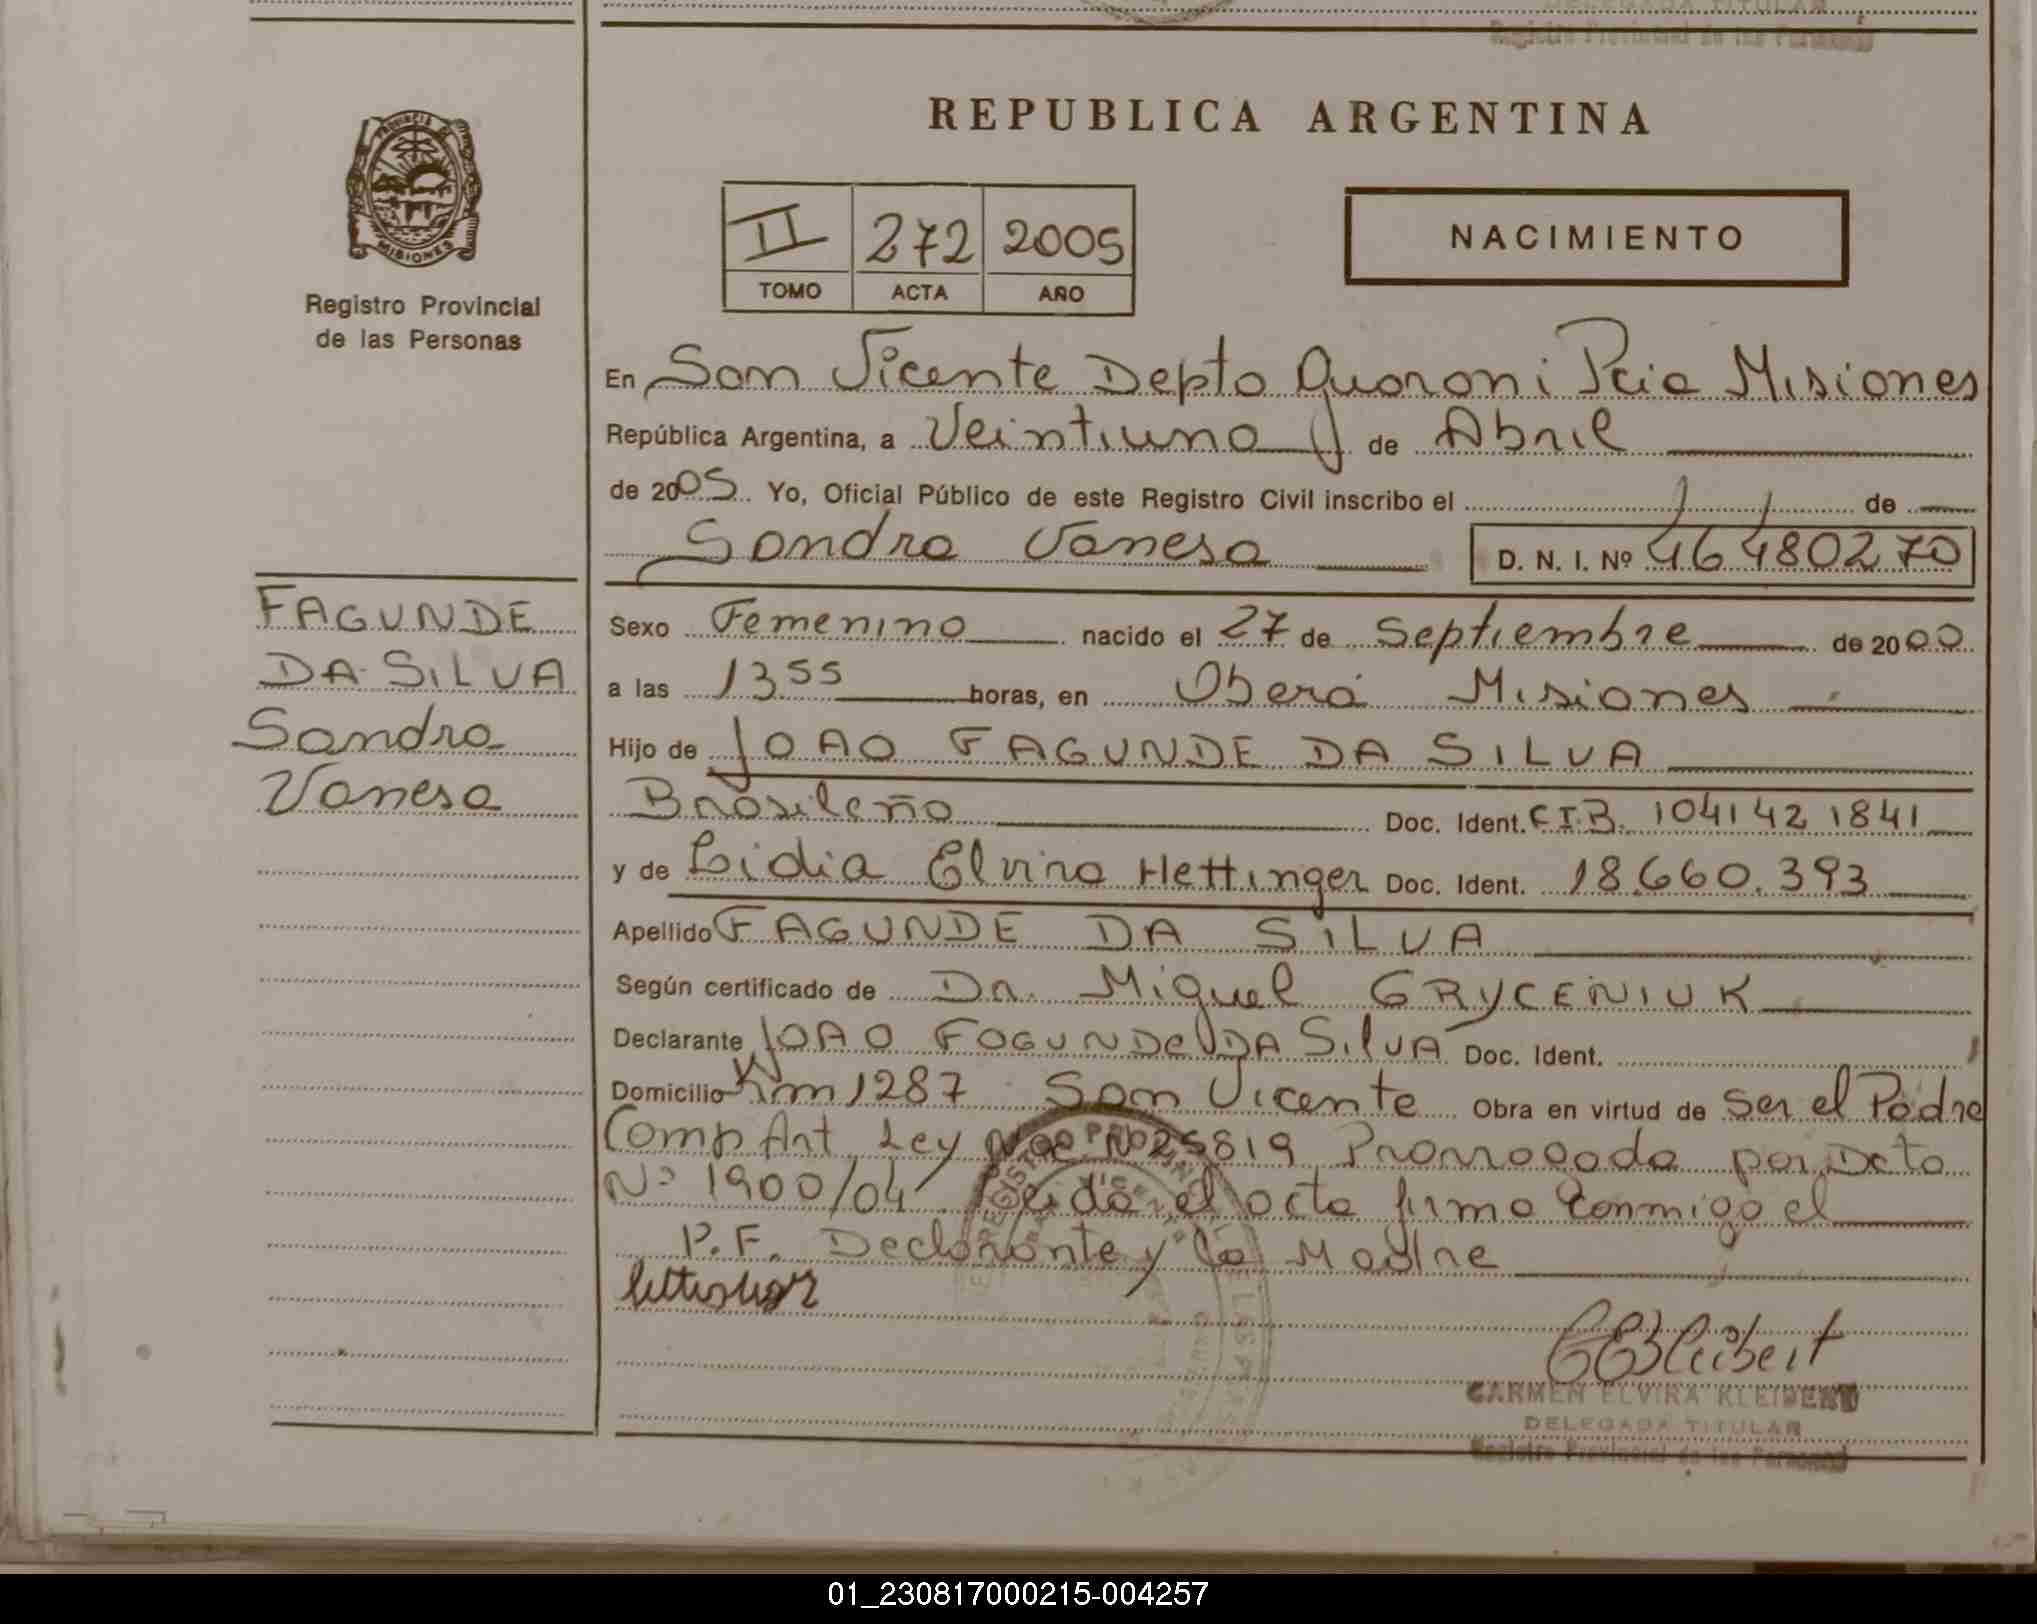 REPUBLICA ARGENTINA
PROVINCIA DE
MISIONES
Registro Provincial
de las Personas
II 272 2005
TOMO ACTA AÑO
NACIMIENTO
En San Vicente Depto Guaraní Pcia Misiones
República Argentina, a Veintiuno de Abril
de 2005 Yo, Oficial Público de este Registro Civil inscribo el de
Sandra Vanesa D. N. I. Nº 46480270
FAGUNDE
DA SILVA
Sandra
Vanesa
Sexo Femenino nacido el 27 de Septiembre de 2000
a las 13 55 horas, en Oberá Misiones
Hijo de JOAO FAGUNDE DA SILVA
Brasileño Doc. Ident. C.I.B. 1041421841
y de Lidia Elvira Hettinger Doc. Ident. 18.660.393
Apellido FAGUNDE DA SILVA
Según certificado de Dr. Miguel GRYCENIUK
Declarante JOAO FAGUNDE DA SILVA Doc. Ident.
Domicilio Km 1287 San Vicente Obra en virtud de Ser el Padre
Comp Art Ley Nac Nº 25819 Prorrogada por Dcto
Nº 1900/04 Leída el acta firma conmigo el
P.F. Declarante y la Madre
CARMEN ELVIRA KLEIBERT
DELEGADA TITULAR
Registro Provincial de las Personas
01_230817000215-004257